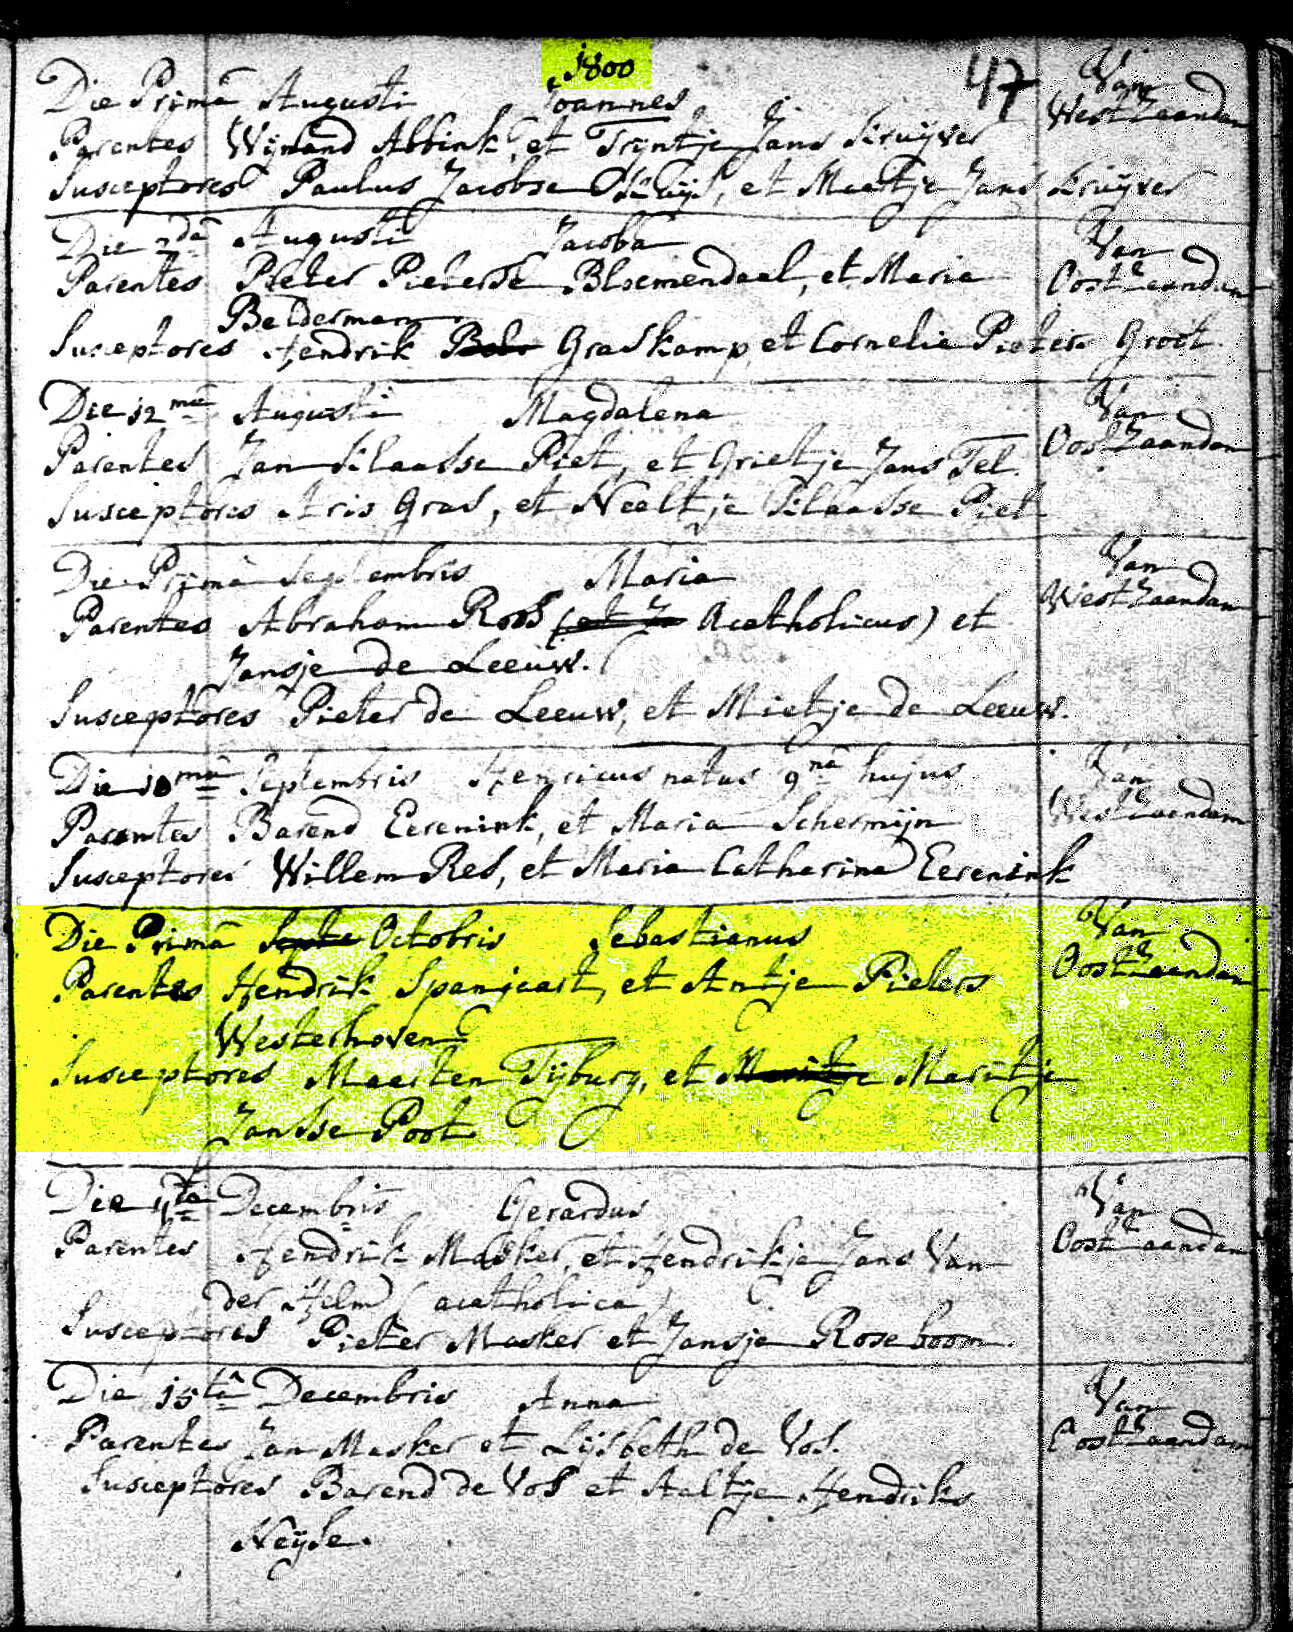 1800
47
Die Primâ Augusti Joannes Van
West Zaandam
Parentes Wijnand Abbink, et Trijntje Jans Kruijver
Susceptores Paulus Jacobse, et Maetje Jans Kruijver
Die 2dâ Augusti Jacoba Van
Oost Zaandam
Parentes Pieter Pieterse Bloemendaal, et Maria
Belderman
Susceptores Hendrik Graskamp, et Cornelia Pieters Groot.
Die 12mâ Augusti Magdalena Van
Oost Zaandam
Parentes Jan Klaasse Piet, et Grietje Jans Tel.
Susceptores Aris Gras, et Neeltje Klaasse Piet
Die Primâ Septembris Maria Van
West Zaandam
Parentes Abraham Roos (et Ja Acatholicus) et
Jansje de Leeuw.
Susceptores Pieter de Leeuw, et Mietje de Leeuw.
Die 10mâ Septembris Henricus natus 9nâ hujus Van
West Zaandam
Parentes Barend Eerenink, et Maria Schermijn
Susceptores Willem Res, et Maria Catharina Eerenink
Die Primâ Septe Octobris Sebastianus Van
Oost Zaandam
Parentes Hendrik Spanjeart, et Antje Pieters
Westerhoven
Susceptores Maerten Tijburg, et Maritje Maritje
Jansse Poot
Die 4tâ Decembris Gerardus Van
Oost Zaandam
Parentes Hendrik Masker, et Hendrikje Jans Van
der Helm (acatholica)
Susceptores Pieter Masker et Jansje Roseboom
Die 15tâ Decembris Anna Van
Oost Zaandam
Parentes Jan Masker et Lijsbeth de Vos.
Susceptores Barend de Vos et Aaltje Hendriks
Neijse.